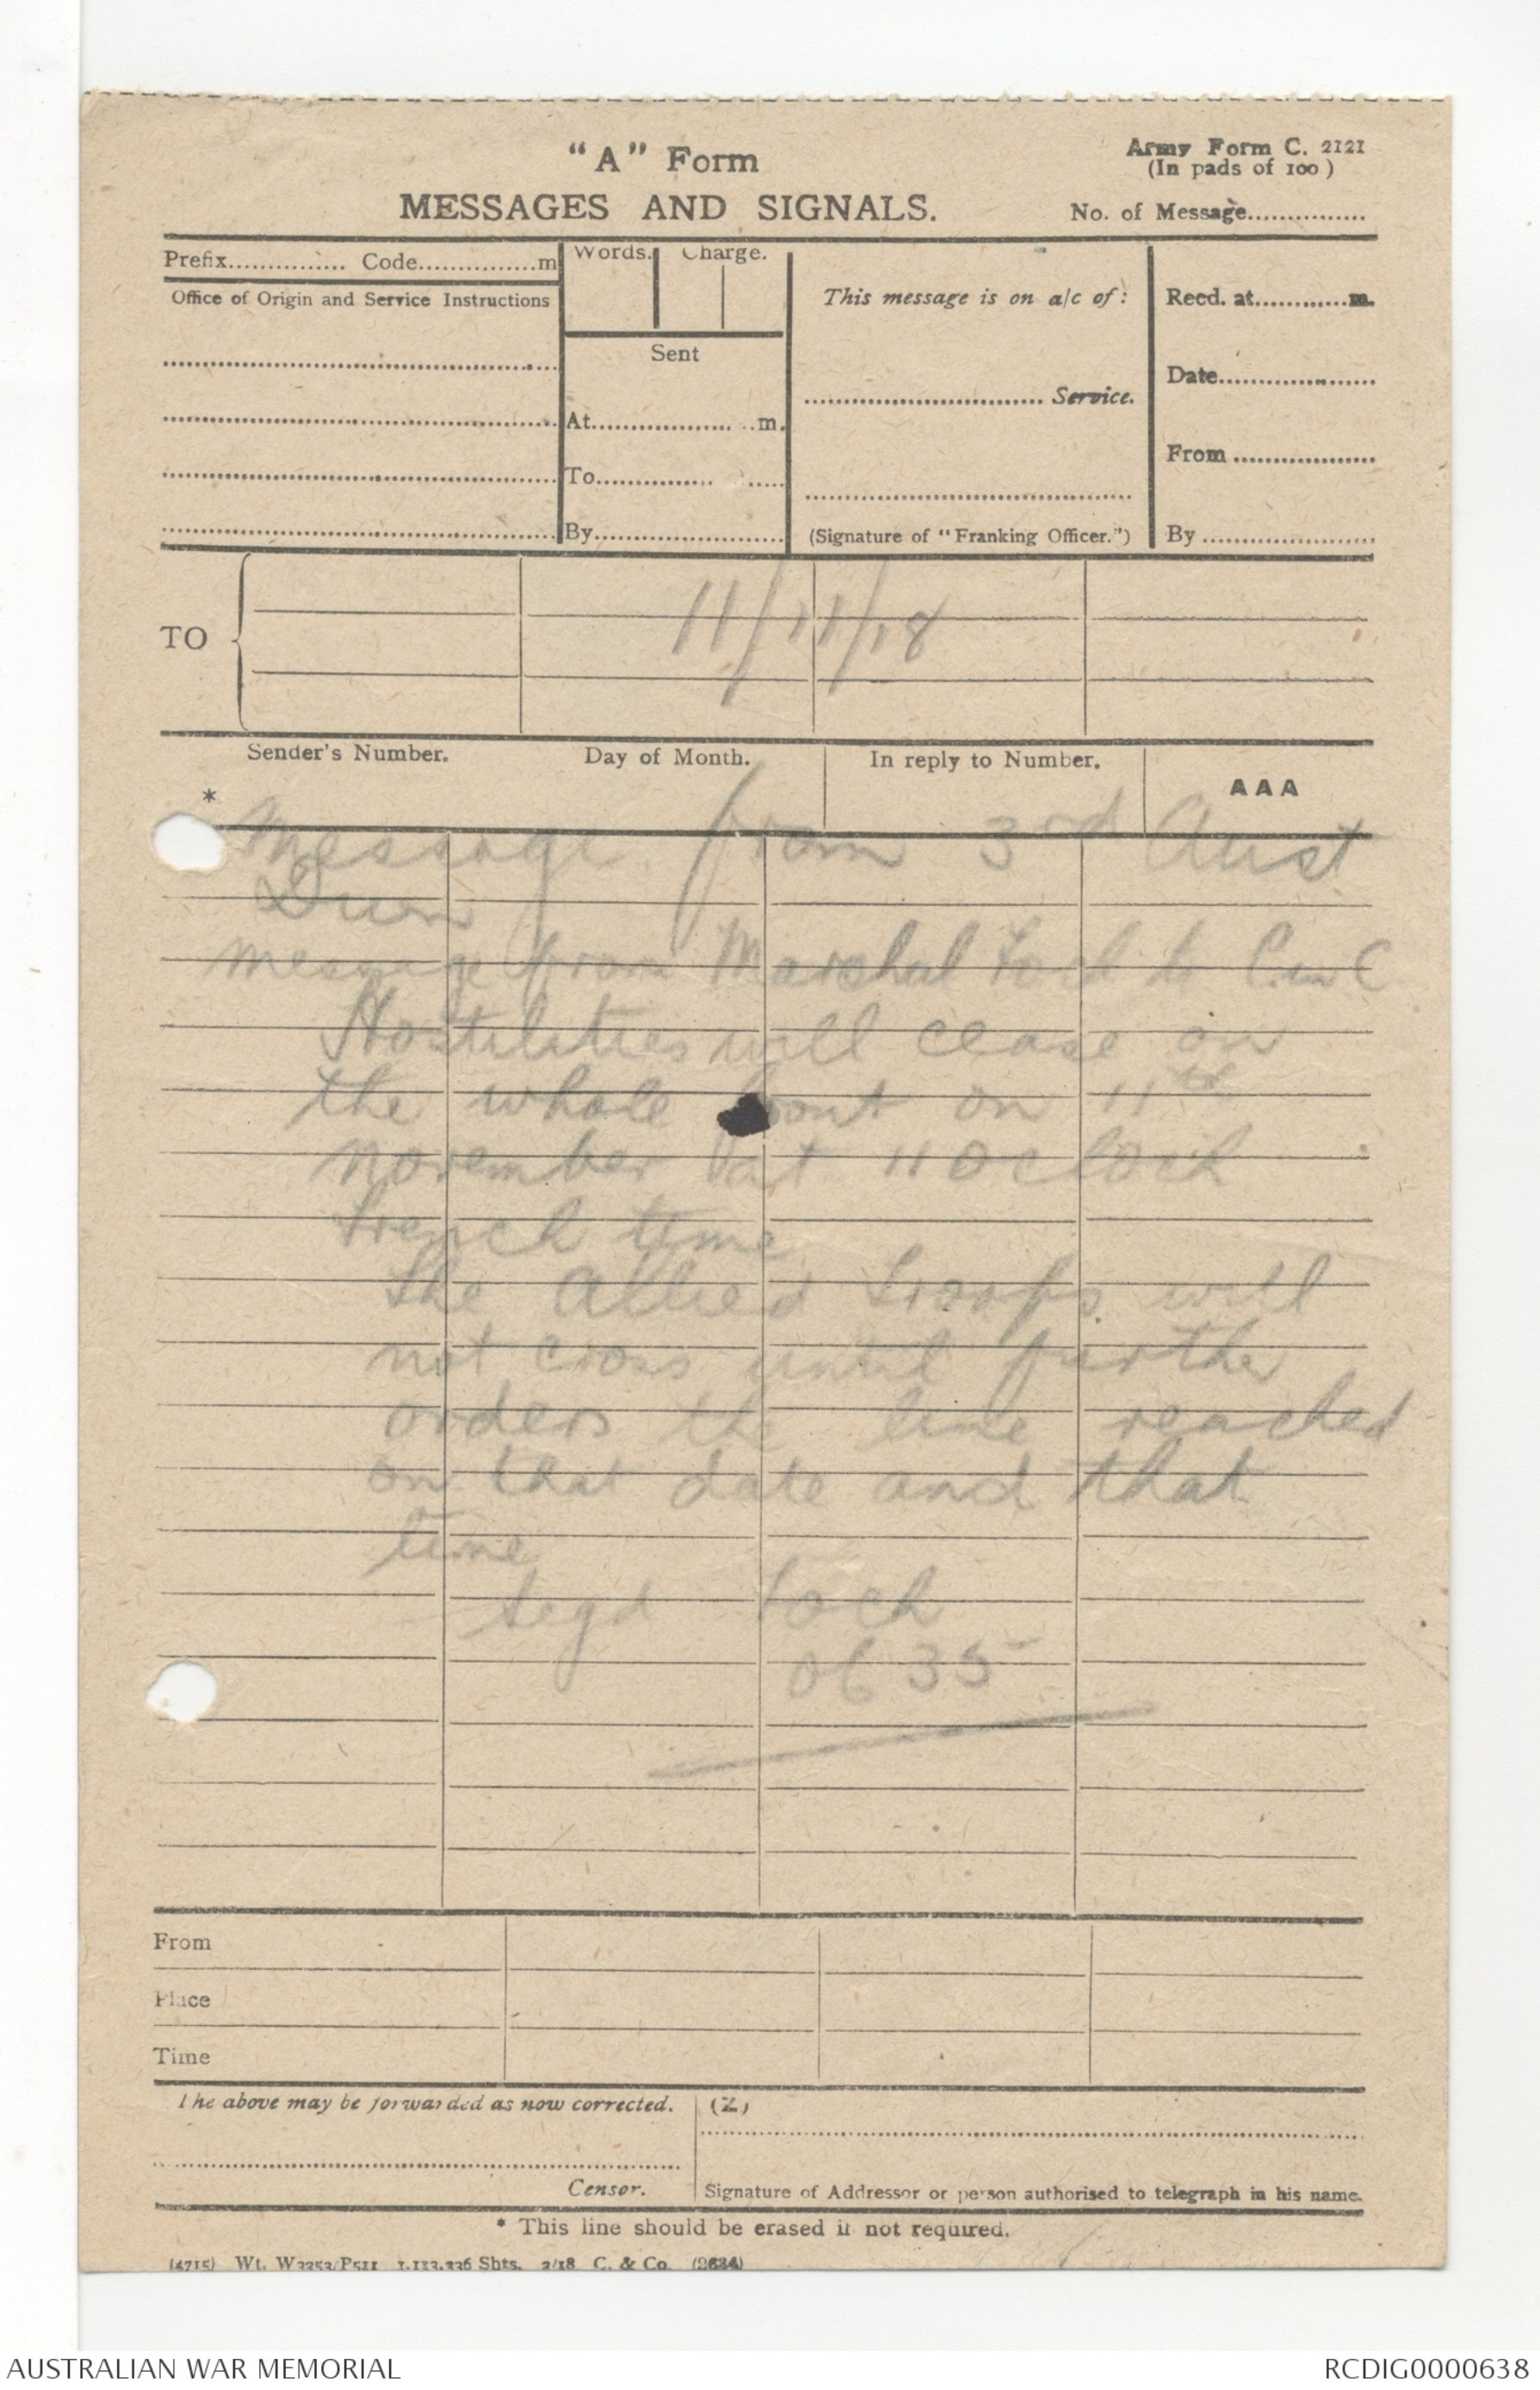 "A" Form
Army Form C. 2121
(In pads of 100)
MESSAGES AND SIGNALS.
No. of Message...............
Prefix............... Code...............m
Words.
Charge.
This message is on a/c of:
Recd. at............m.
Office of Origin and Service Instructions
Sent
Date....................
............................... Service.
At.....................m.
From ..................
To.........................
(Signature of "Franking Officer.")
By.........................
By ......................
TO
11/11/18
Sender's Number.
Day of Month.
In reply to Number.
AAA
*
Message from 3rd Aust
Divn
message from Marshal Foch to C in C
Hostilities will cease on
the whole front on 11th
November at 11 Oclock
French time
The Allied Troops will
not cross until further
orders the line reached
on that date and that
time
Segd Foch
0635
From
Place
Time
The above may be forwarded as now corrected.
(Z)
Censor.
Signature of Addressor or person authorised to telegraph in his name.
* This line should be erased if not required.
(4715) Wt. W3253/P511 1,133,336 Shts. 2/18 C. & Co. (2634)
AUSTRALIAN WAR MEMORIAL
RCDIG0000638